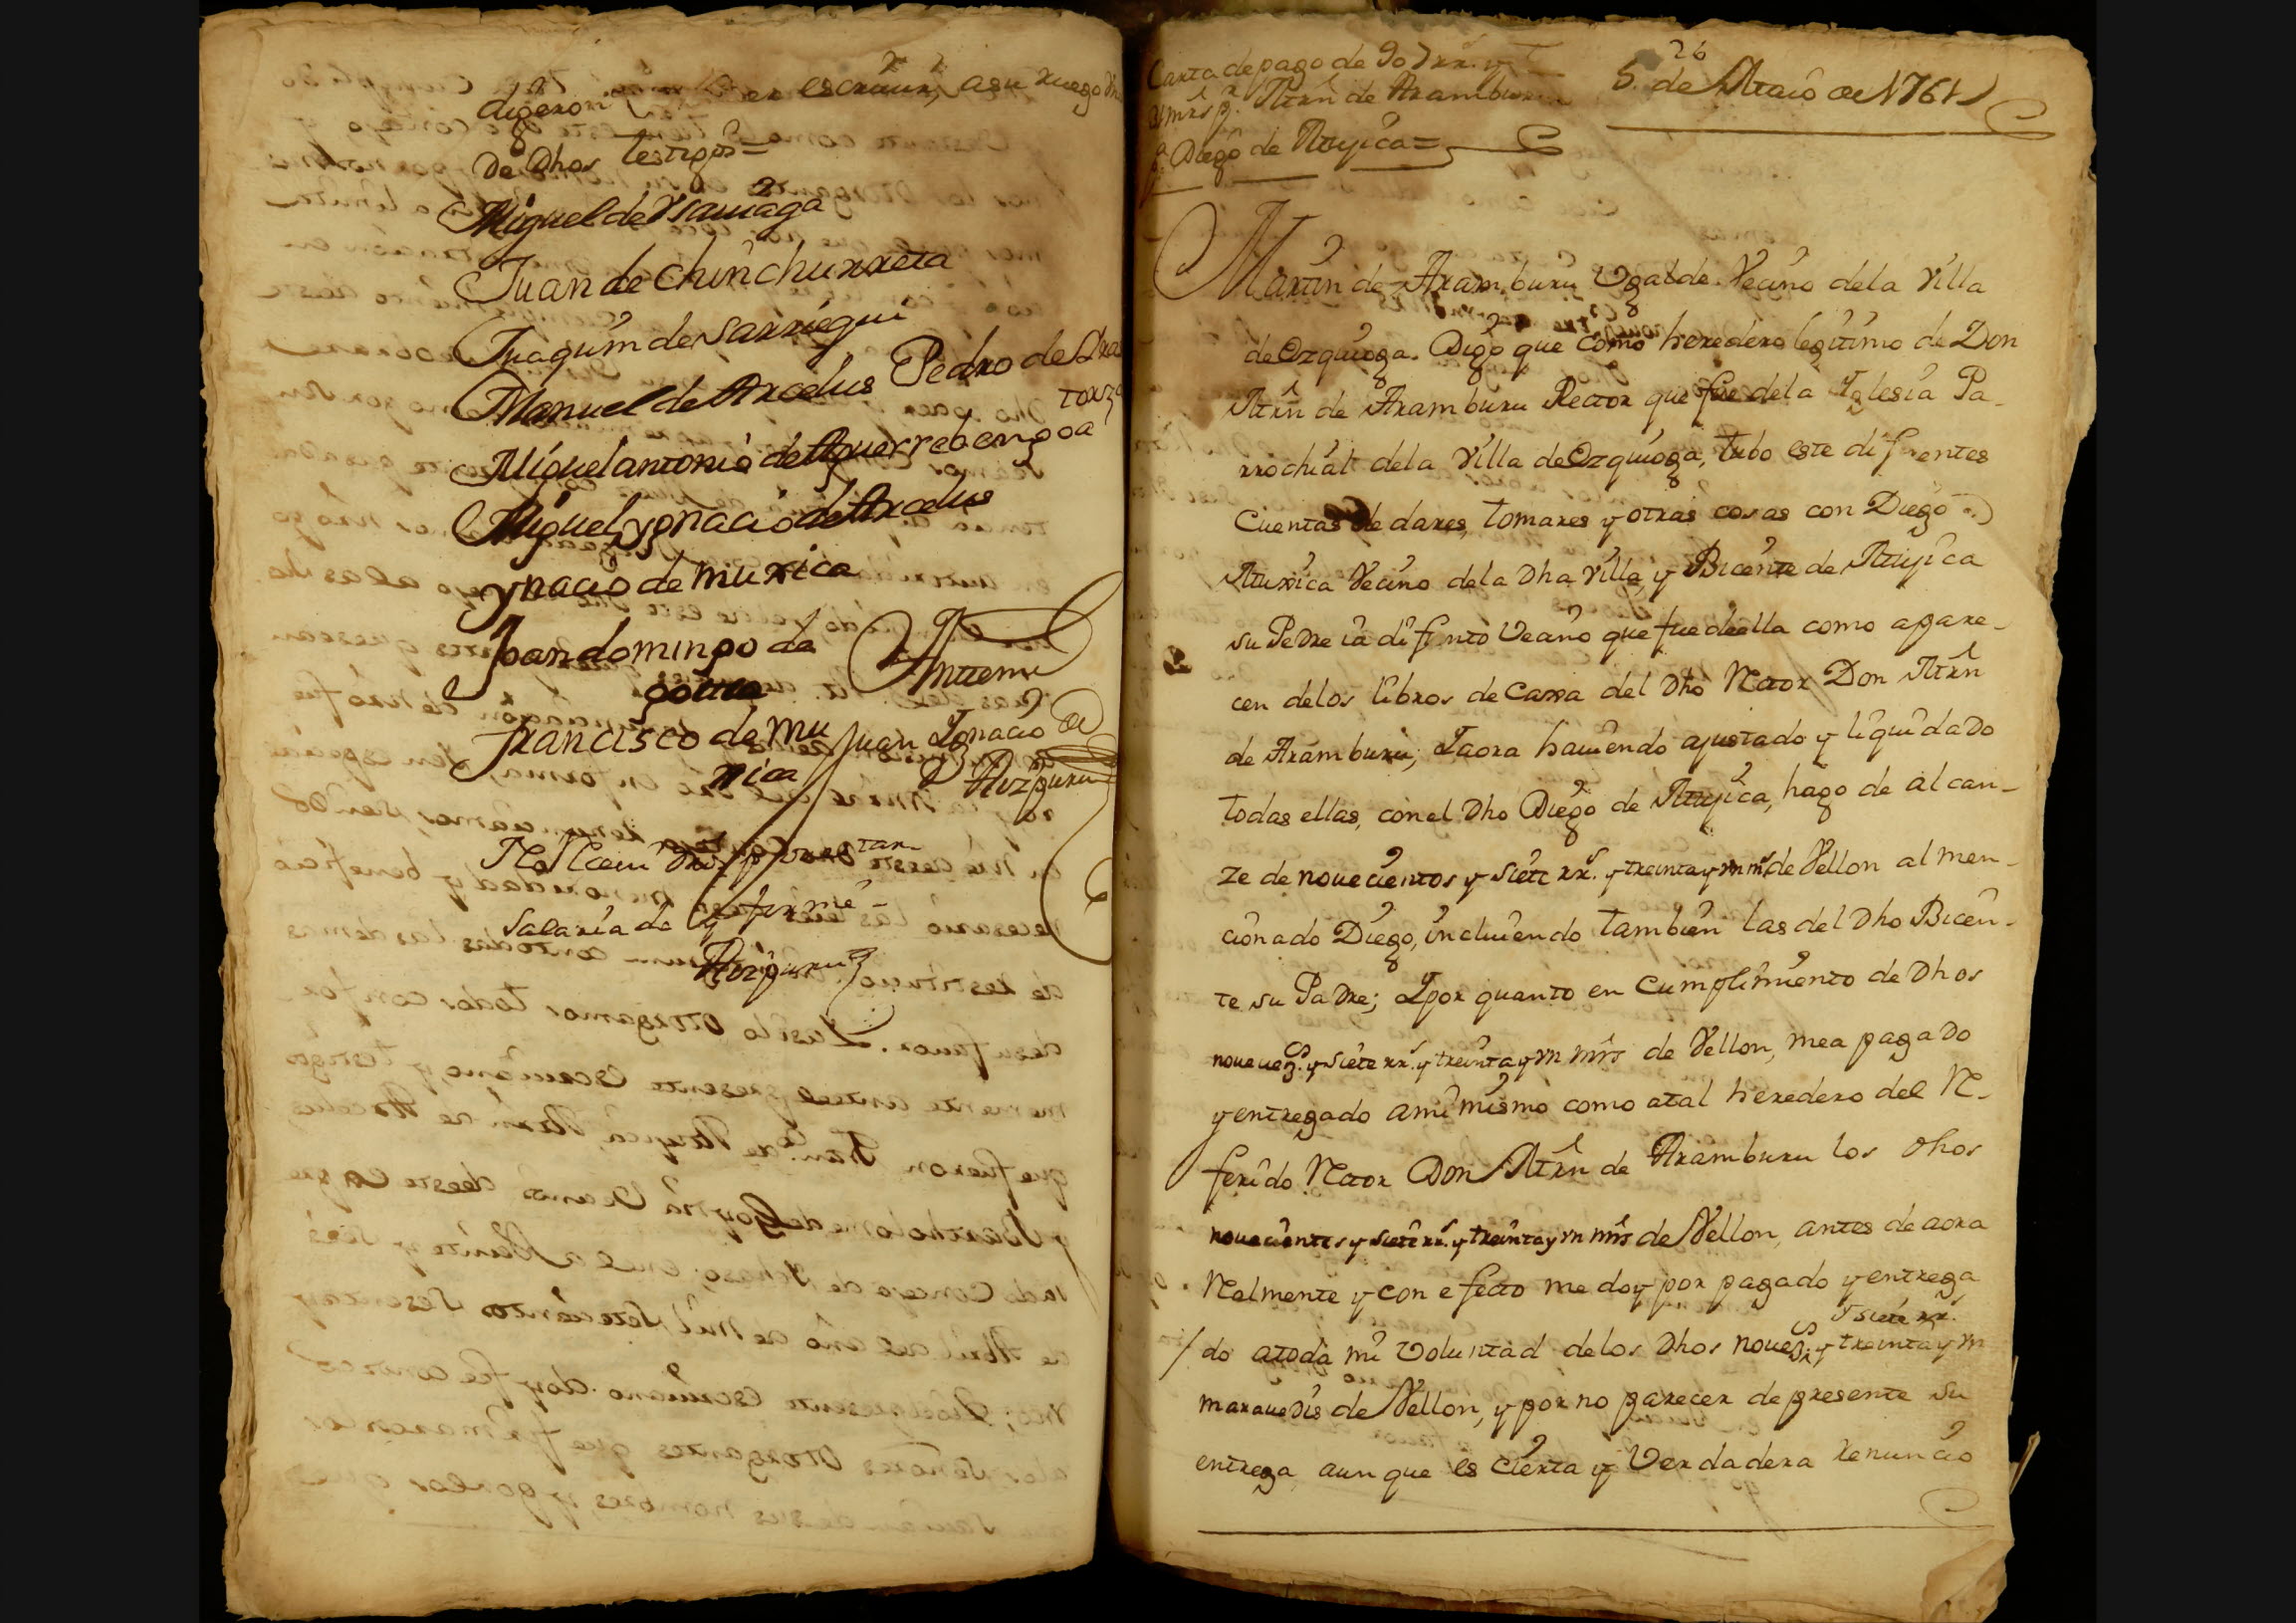 digeron saver escriuir, a su ruego
de Dhos testigos=
Miguel de Ysauiaga
Juan de Chinchurreta
Juaquin de Sarriegui
Manuel de Arcelus Pedro de
Miguel antonio de Aguerrebengoa
Miguel ygnacio de Arcelus
ygnacio de muxica
Joan domingo de
goitia
Anttemi
francisco de mu
xica
Juan Ygnacio de
Aizpuru
Salaria de
y firmé
Aizpuru
Carta de pago de 907 rr.s y
mrs p.r Mrn de Aramburu
a Diego de Muxica=
26
5. de Maio de 1761
Martin de Aramburu Ugalde Vecino dela Villa
de Ozquioga. Digo que como heredero legitimo de Don
Mrn de Aramburu Rector que fue dela Yglesia Pa-
rrochial dela Villa de Ozquioga, tubo este diferentes
Cuentas de dares, tomares y otras cosas con Diego de
Muxica Vecino dela Dha Villa, y Bicente de Muxica
su Padre ia difunto Vecino que fue de ella como apare-
cen delos libros de Caxa del Dho Rector Don Mrn
de Aramburu; Y aora hauiendo ajustado y liquidado
todas ellas, con el Dho Diego de Muxica, hago de alcan-
ze de nouecientos y siete rr.s y treinta y un mrs de Vellon al men-
cionado Diego, incluiendo tambien las del Dho Bicen-
te su Padre; Y por quanto en Cumplimiento de Dhos
nouez.s y siete rr.s y treinta y un mrs de Vellon, mea pagado
y entregado ami mismo como atal heredero del Re-
ferido Rector Don Mrn de Aramburu los Dhos
nouecientos y siete rr.s y treinta y un mrs de Vellon, antes de aora
Realmente y con efecto me doy por pagado y entrega
Y siete rr.s
do atoda mi Voluntad delos Dhos nouez.s y treinta y un
marauedis de Vellon, y por no parecer de presente su
entrega, aunque es cierta y Verdadera renuncio